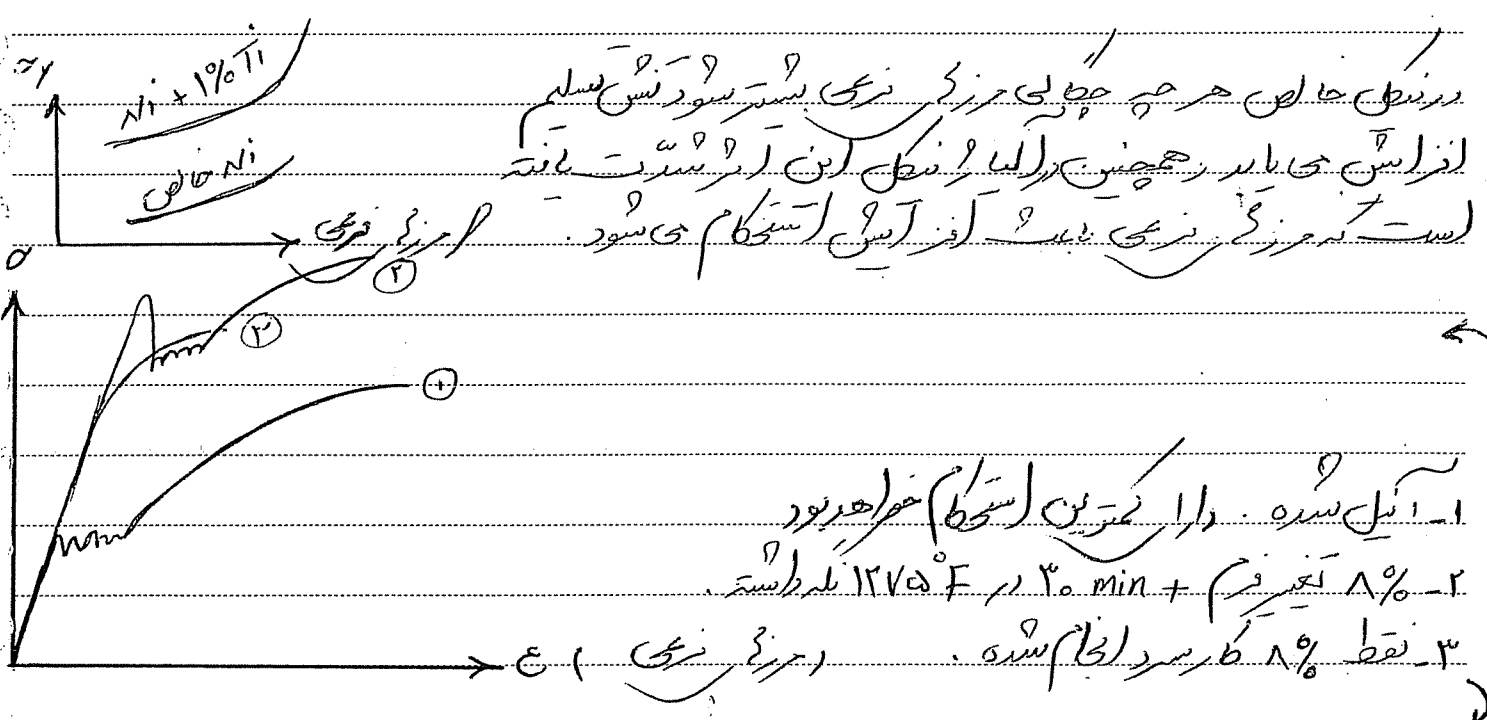 در نیکل خالص هر چه چگالی مرزهای فرعی بیشتر شود تنش تسلیم
افزایش می یابد همچنین در آلیاژ نیکل این اثر شدت یافته
است که مرزهای فرعی باعث افزایش استحکام می شود.
σy
Ni + ۱% Ti
Ni خالص
مرزهای فرعی
σ
۲
۳
۱
۱- آنیل شده. دارای کمترین استحکام خواهد بود
۲- ۸% تغییر فرم + ۳۰ min در ۱۲۷۵°F نگه داشته.
۳- فقط ۸% کار سرد انجام شده.
(مرزهای فرعی) ε